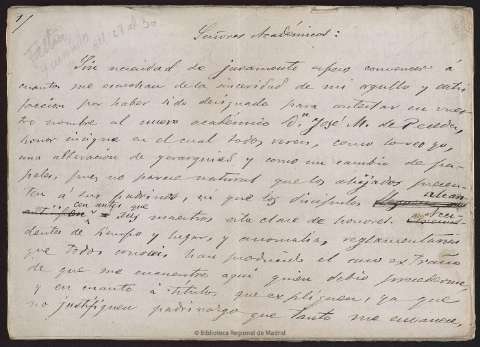 1/
Faltan
del 27 al 30
Señores Académicos:
Sin necesidad de juramento espero convencer á
cuantos me escuchan de la sinceridad de mi orgullo y satis
facción por haber sido designado para contestar en vues
tro nombre al nuevo académico Dn José M. de Pereda,
honor insigne en el cual todos veréis, como lo veo yo,
una alteración de gerarquías y como un cambio de pa-
peles, pues no parece natural que los ahijados presen
ten á sus padrinos, ni que los discípulos alcan
con antes que
sus maestros esta clase de honores. Acci
dentes de tiempo y lugar, y anomalías reglamentarias
que todos conocéis han producido el caso extraño
de que me encuentre aquí quien debió precederme,
y en cuanto á títulos que expliquen, ya que
no justifiquen padrinazgo que tanto me enaltece,
© Biblioteca Regional de Madrid